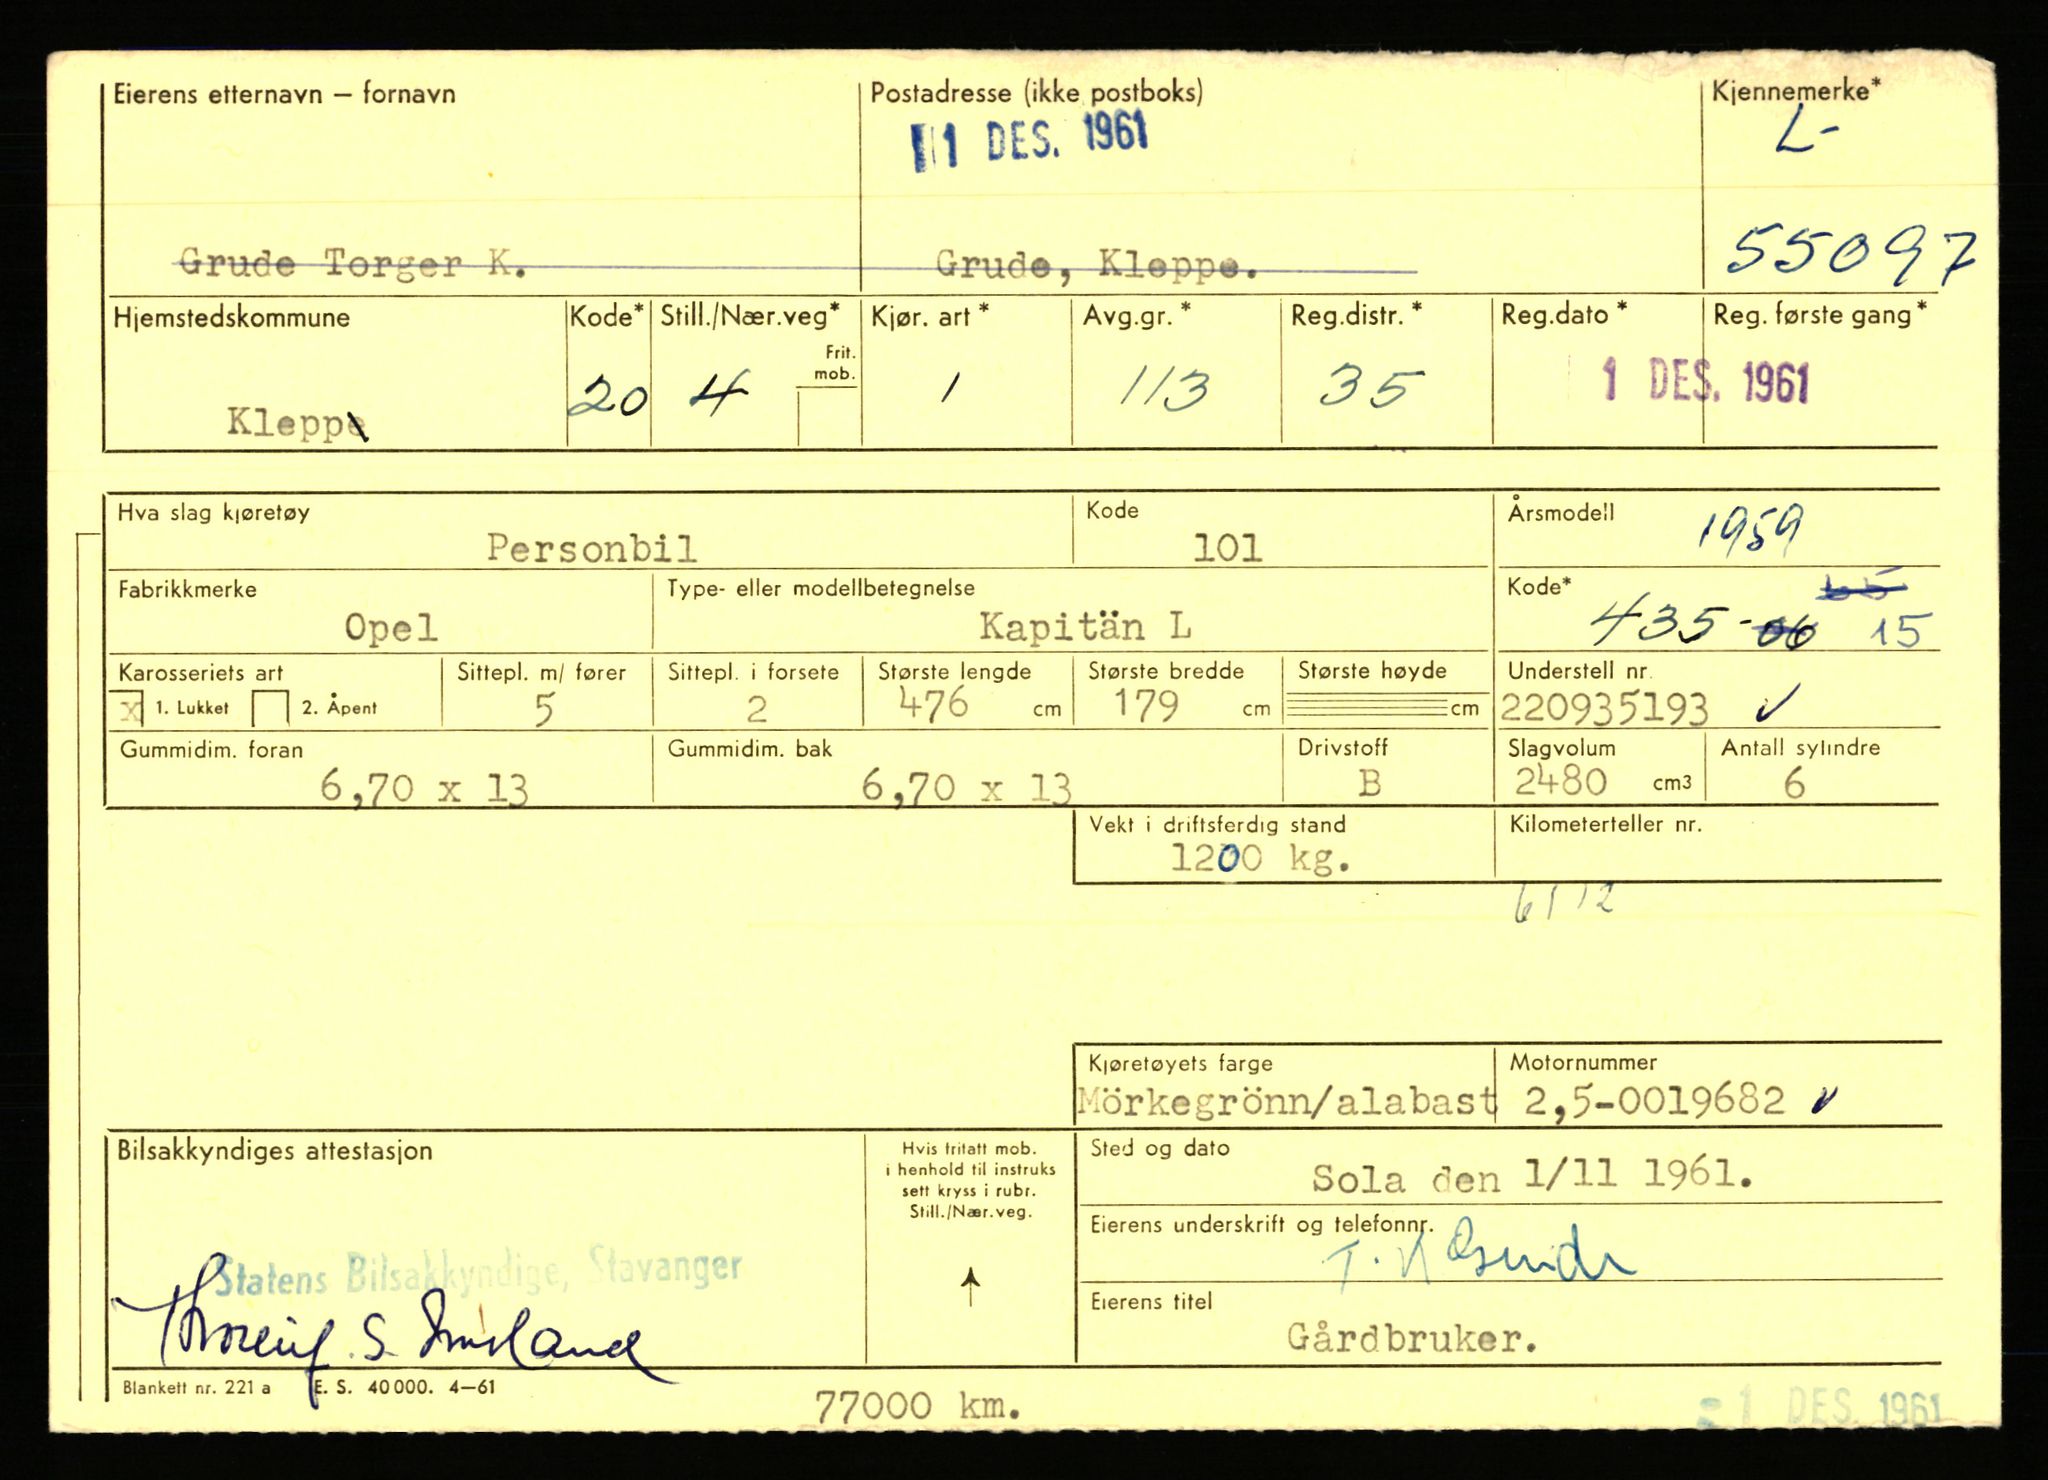 Eierens etternavn – fornavn
Postadresse (ikke postboks)
Kjennemerke*
1 DES. 1961
L-
Grude Torger K.
Grude, Kleppe.
55097
Hjemstedskommune
Kode*
Still./Nær.veg*
Kjør. art *
Avg.gr. *
Reg.distr. *
Reg.dato *
Reg. første gang *
Frit. mob.
Kleppe
20
4
1
113
35
1 DES. 1961
Hva slag kjøretøy
Personbil
Kode
101
Årsmodell
1959
Fabrikkmerke
Opel
Type- eller modellbetegnelse
Kapitän L
Kode*
435-06 15
Karosseriets art
x 1. Lukket
2. Åpent
Sittepl. m/ fører
5
Sittepl. i forsete
2
Største lengde
476 cm
Største bredde
179 cm
Største høyde
cm
Understell nr.
220935193
Gummidim. foran
6,70 x 13
Gummidim. bak
6,70 x 13
Drivstoff
B
Slagvolum
2480 cm3
Antall sylindre
6
Vekt i driftsferdig stand
1200 kg.
Kilometerteller nr.
6112
Kjøretøyets farge
Mörkegrönn/alabast
Motornummer
2,5-0019682
Bilsakkyndiges attestasjon
Hvis fritatt mob.
i henhold til instruks
sett kryss i rubr.
Still./Nær.veg.
Sted og dato
Sola den 1/11 1961.
Eierens underskrift og telefonnr.
T. K Grude
Statens Bilsakkyndige, Stavanger
Eierens titel
Gårdbruker.
Blankett nr. 221 a E. S. 40 000. 4–61
77000 km.
1 DES. 1961